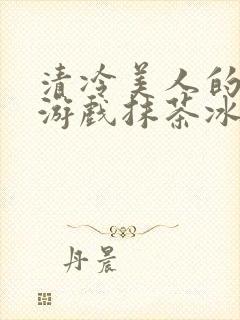 清冷美人的
游戏抹茶冰
丹晨